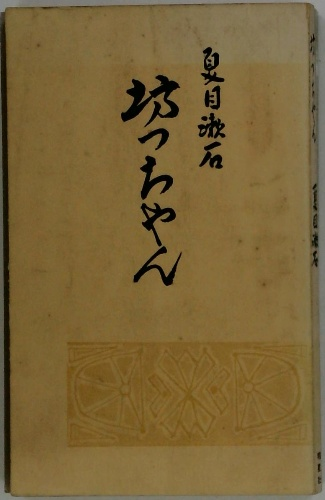 夏目漱石
坊っちゃん
坊っちゃん 夏目漱石